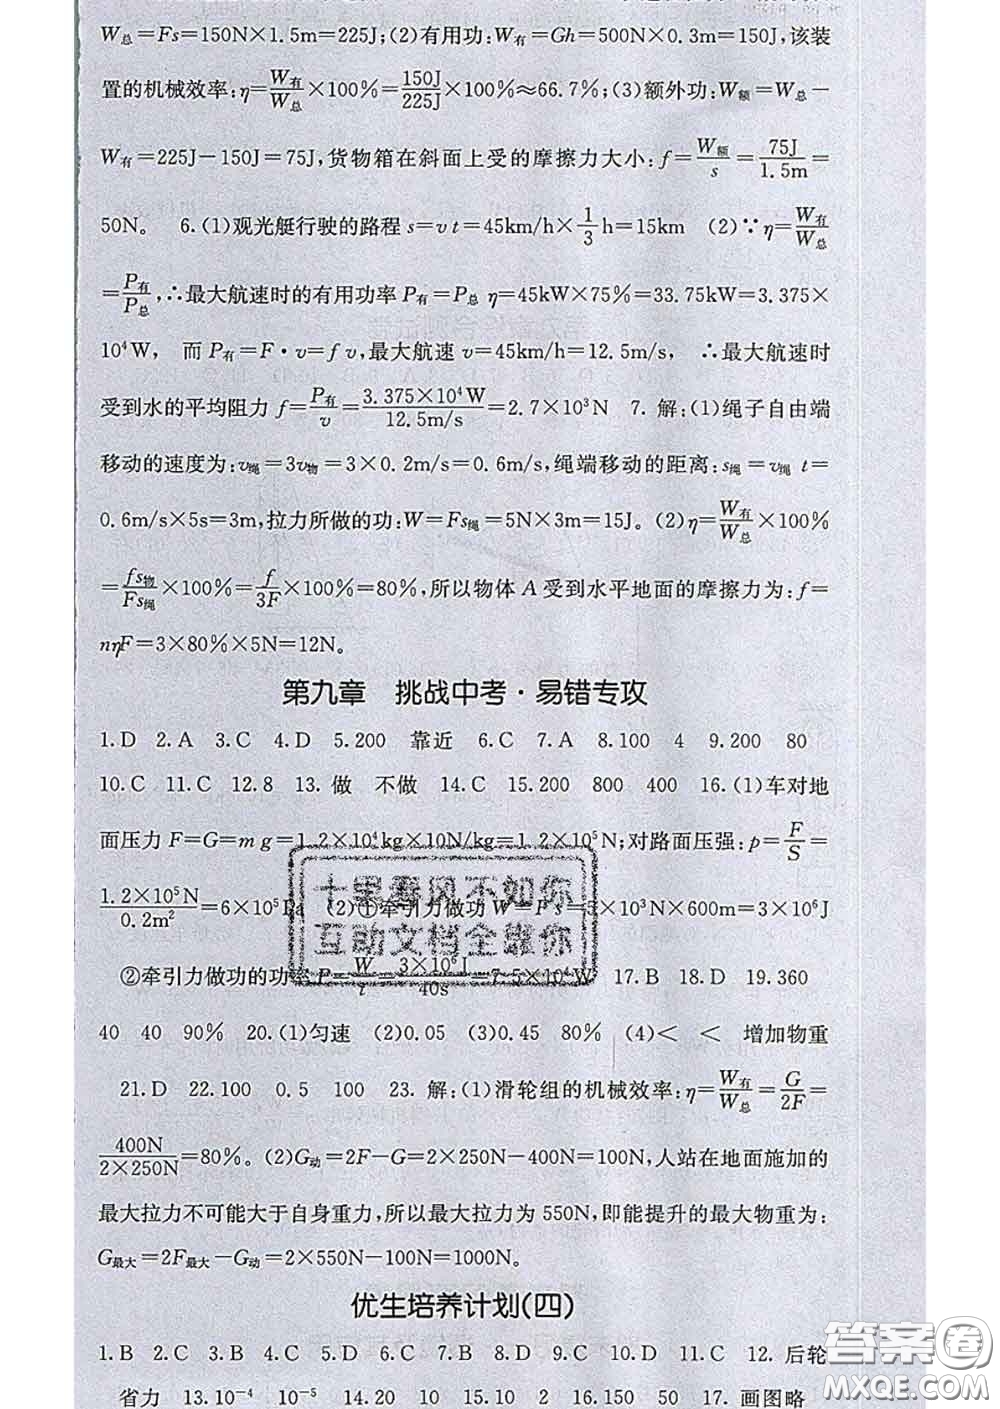 W总=Fs=150N×1.5m=225J;(2)有用功:W有=Gh=500N×0.3m=150J,该装
置的机械效率:η=W有/W总×100%=150J/225J×100%≈66.7%;(3)额外功:W额=W总-
W有=225J-150J=75J,货物箱在斜面上受的摩擦力大小:f=W额/s=75J/1.5m=
50N。 6.(1)观光艇行驶的路程s=vt=45km/h×1/3h=15km (2)∵η=W有/W总
=P有/P总,∴最大航速时的有用功率P有=P总η=45kW×75%=33.75kW=3.375×
10⁴W, 而P有=F·v=fv,最大航速v=45km/h=12.5m/s, ∴最大航速时
受到水的平均阻力f=P有/v=3.375×10⁴W/12.5m/s=2.7×10³N 7. 解:(1)绳子自由端
移动的速度为:v绳=3v物=3×0.2m/s=0.6m/s,绳端移动的距离:s绳=v绳 t=
0.6m/s×5s=3m,拉力所做的功:W=Fs绳=5N×3m=15J。(2)η=W有/W总×100%
=fs物/Fs绳×100%=f/3F×100%=80%,所以物体A受到水平地面的摩擦力为:f=
nηF=3×80%×5N=12N。
第九章 挑战中考·易错专攻
1.D 2.A 3.C 4.D 5.200 靠近 6.C 7.A 8.100 4 9.200 80
10.C 11.C 12.8 13. 做 不做 14.C 15.200 800 400 16.(1)车对地
面压力F=G=mg=1.2×10⁴kg×10N/kg=1.2×10⁵N;对路面压强:p=F/S=
1.2×10⁵N/0.2m²=6×10⁵Pa (2)①牵引力做功W=Fs=5×10³N×600m=3×10⁶J
②牵引力做功的功率P=W/t=3×10⁶J/40s=7.5×10⁴W 17.B 18.D 19.360
十里春风不如你
互动文档全靠你
40 40 90% 20.(1)匀速 (2)0.05 (3)0.45 80% (4)< < 增加物重
21.D 22.100 0.5 100 23. 解:(1)滑轮组的机械效率:η=W有/W总=G/2F=
400N/2×250N=80%。(2)G动=2F-G=2×250N-400N=100N,人站在地面施加的
最大拉力不可能大于自身重力,所以最大拉力为550N,即能提升的最大物重为:
G最大=2F最大-G动=2×550N-100N=1000N。
优生培养计划(四)
1.B 2.C 3.B 4.C 5.D 6.C 7.B 8.D 9.C 10.D 11.C 12. 后轮
省力 13.10⁻⁴ 10⁻⁵ 14.20 10 15.10 2 16.150 50 17. 画图略
答案圈
MXQE.COM